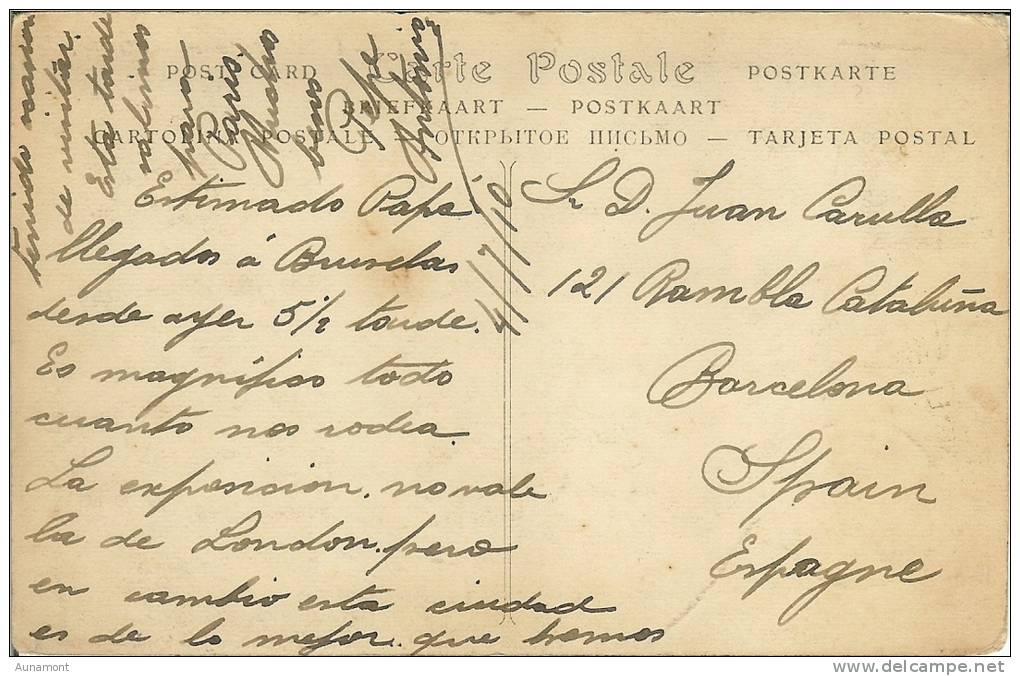 Carte Postale
POST CARD
POSTKARTE
BRIEFKAART — POSTKAART
CARTOLINA POSTALE — ОТКРЫТОЕ ПИСЬМО — TARJETA POSTAL
4/7/10
Estimado Papá
llegados á Bruselas
desde ayer 5½ tarde.
Es magnífico todo
cuanto nos rodea.
La exposicion. no vale
la de London. pero
en cambio esta ciudad
es de lo mejor. que hemos
tenido
de visitar.
Esta tarde
salimos
para
Paris
Muchos
besos
Pepe
Sr D. Juan Carulla
121 Rambla Cataluña
Barcelona
Spain
Espagne
Aunamont
www.delcampe.net